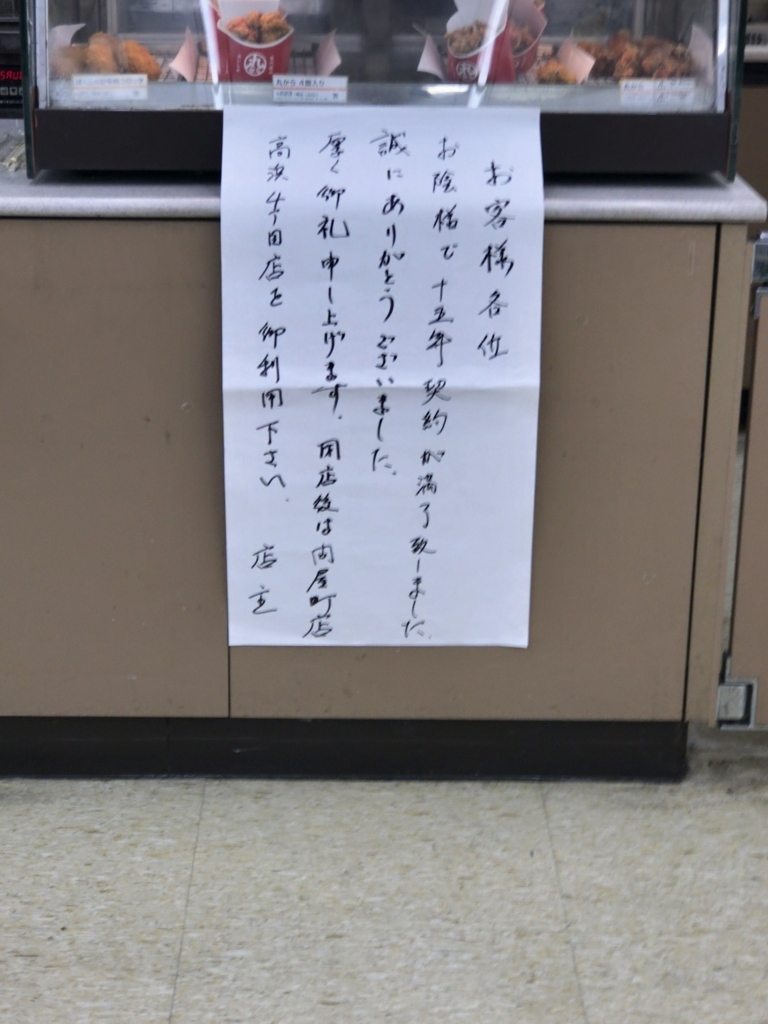 お客様各位
お陰様で十五年契約が満了致しました。
誠にありがとうございました。
厚く御礼申し上げます。閉店後は問屋町店
高浜4丁目店を御利用下さい。
店主